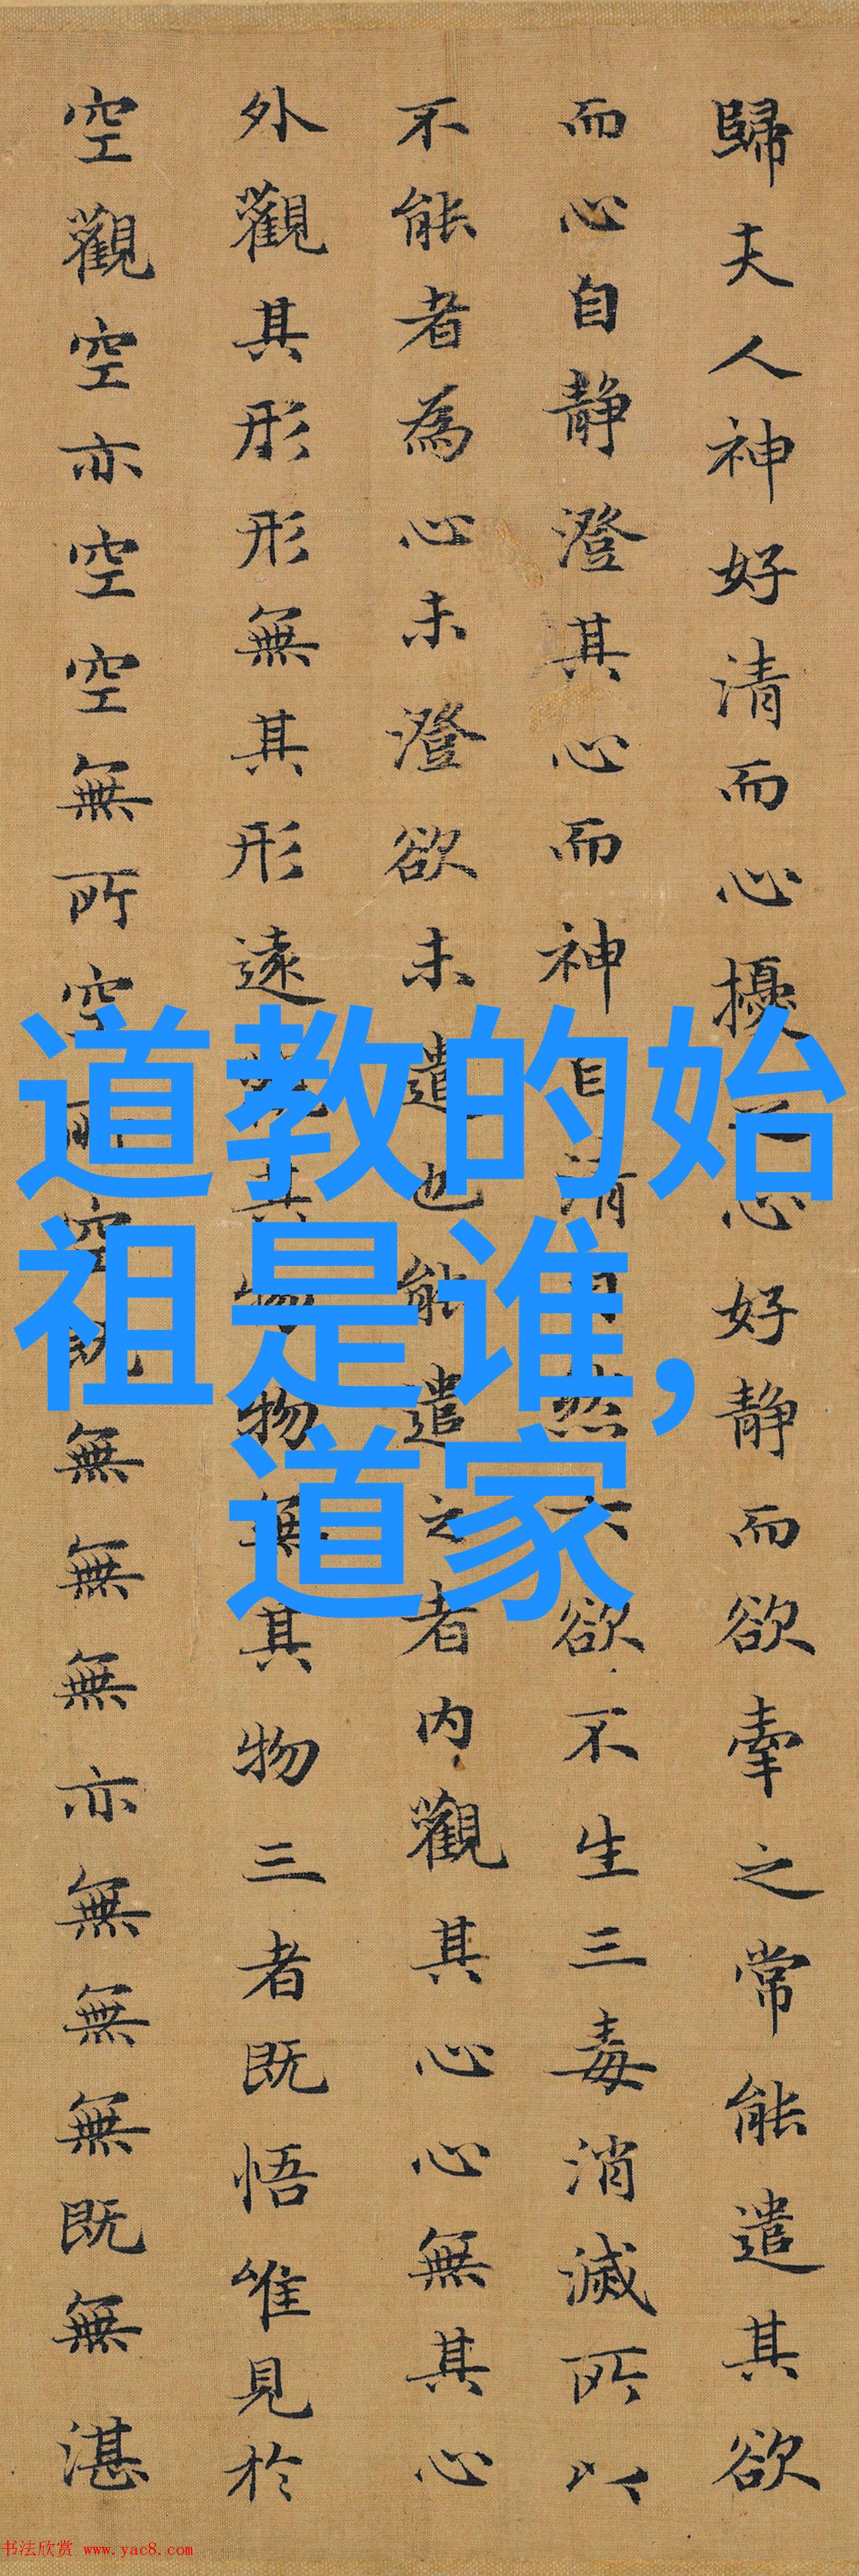 歸夫人神好清而心擾之心好静而欲牽之常能遣其欲
而心自静澄其心而神自清自然六欲不生三毒消滅所以
不能者為心未澄欲未遣也能遣之者内觀其心心無其心
外觀其形形無其形遠觀其物物無其物三者既悟唯見於
空觀空亦空空無所空所空既無無無亦無無無既無湛
道教的始
祖是谁,
道家
书法欣赏 www.yac8.com